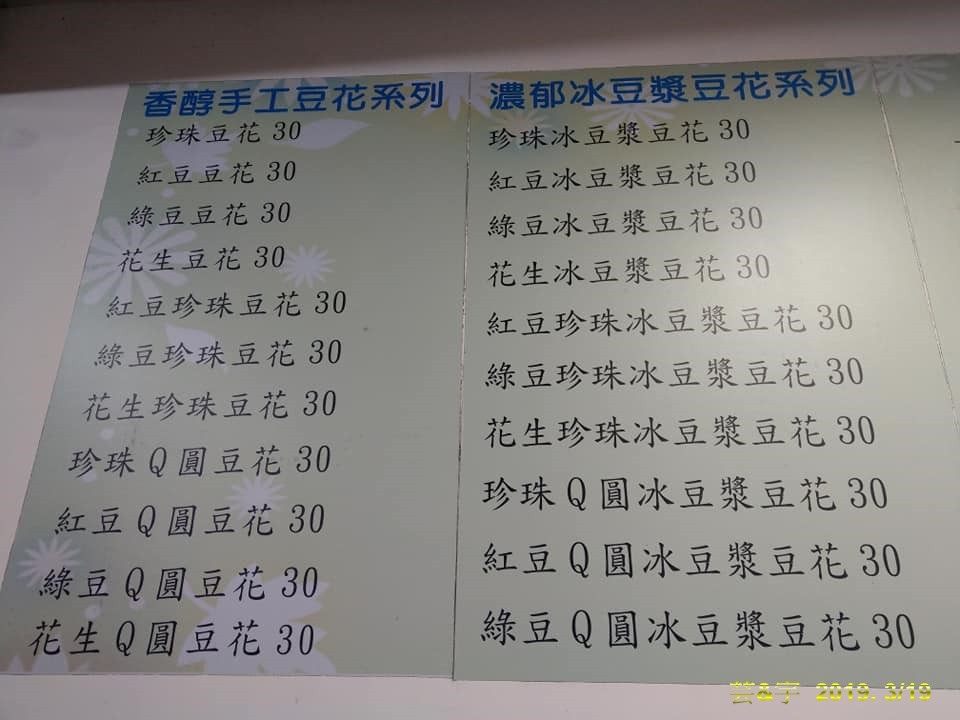 香醇手工豆花系列
珍珠豆花 30
紅豆豆花 30
綠豆豆花 30
花生豆花 30
紅豆珍珠豆花 30
綠豆珍珠豆花 30
花生珍珠豆花 30
珍珠Q圓豆花 30
紅豆Q圓豆花 30
綠豆Q圓豆花 30
花生Q圓豆花 30
濃郁冰豆漿豆花系列
珍珠冰豆漿豆花 30
紅豆冰豆漿豆花 30
綠豆冰豆漿豆花 30
花生冰豆漿豆花 30
紅豆珍珠冰豆漿豆花 30
綠豆珍珠冰豆漿豆花 30
花生珍珠冰豆漿豆花 30
珍珠Q圓冰豆漿豆花 30
紅豆Q圓冰豆漿豆花 30
綠豆Q圓冰豆漿豆花 30
芸&宇 2019. 3/19